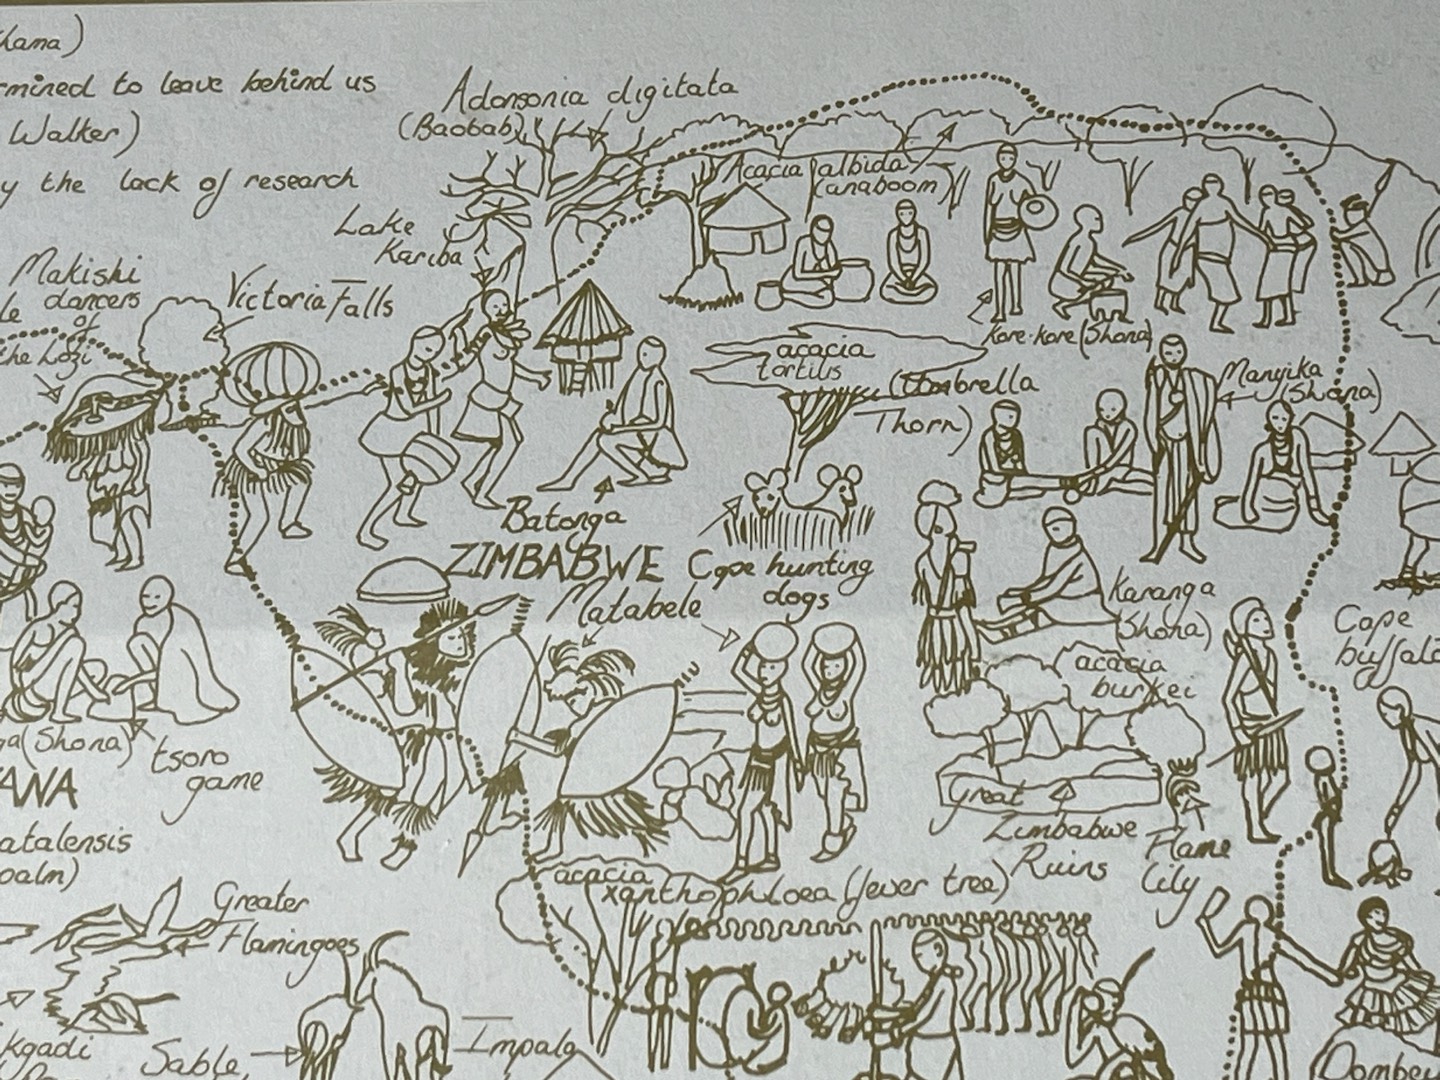 mined to leave behind us
Walker)
y the lack of research
Adonsonia digitata
(Baobab)
Acacia albida
(anaboom)
Lake
Kariba
Makishi
dancers
of
the Lozi
Victoria Falls
Kore-kore (Shona)
acacia
tortilis
(Umbrella
Thorn)
Manyika
(Shona)
Batonga
ZIMBABWE
Matabele
Cape hunting
dogs
Karanga
(Shona)
Cape
acacia
burkei
(Shona)
tsoro
game
Great
Zimbabwe
Ruins
Flame
Lily
acacia
xanthophloea (fever tree)
Greater
Flamingoes
Sable,
Impala